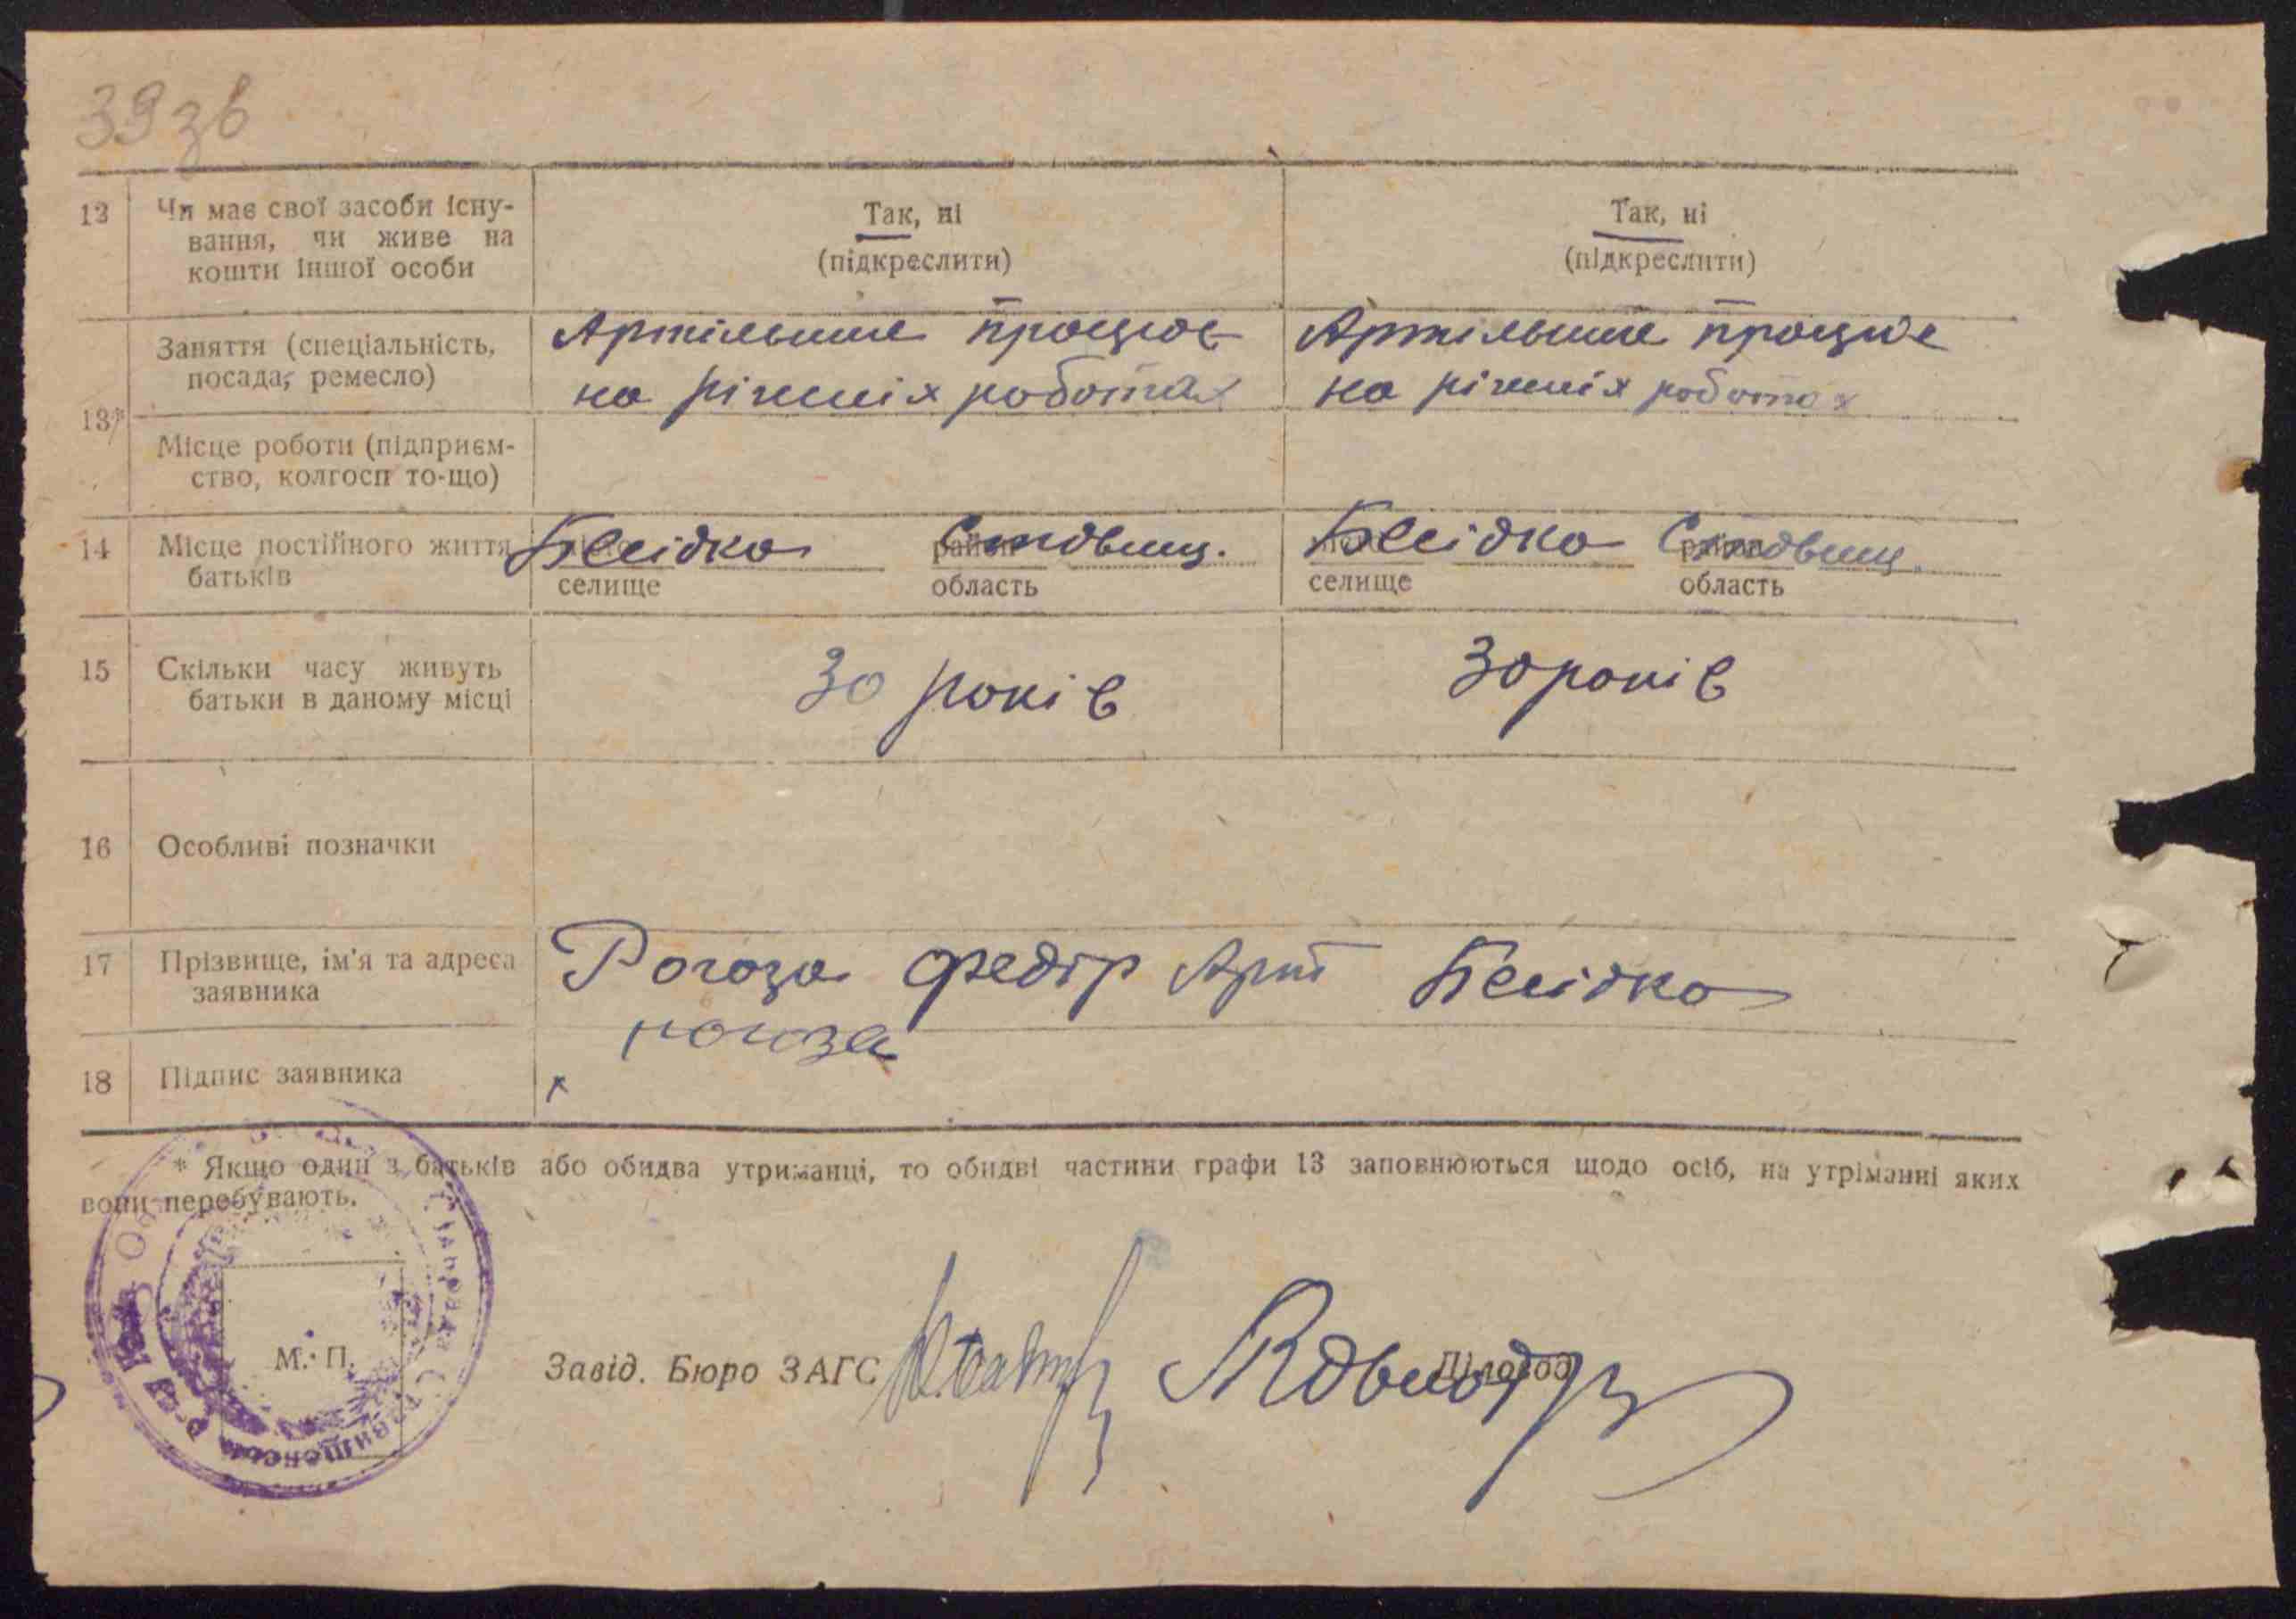 39 зв
12 Чи має свої засоби існу- Так, ні Так, ні
вання, чи живе на (підкреслити) (підкреслити)
кошти іншої особи
13* Заняття (спеціальність, Артільник працює Артільник працює
посада, ремесло) на різних роботах на різних роботах
Місце роботи (підприєм-
ство, колгосп то-що)
14 Місце постійного життя Бесідка район Ставищ. Бесідка район Ставищ.
батьків селище область селище область
15 Скільки часу живуть 30 років 30 років
батьки в даному місці
16 Особливі позначки
17 Прізвище, ім'я та адреса Рогоза Федір Арт Бесідка
заявника
рогоза
18 Підпис заявника х
* Якщо один з батьків або обидва утриманці, то обидві частини графи 13 заповнюються щодо осіб, на утріманні яких
вони перебувають.
М. П.
Завід. Бюро ЗАГС Діловод